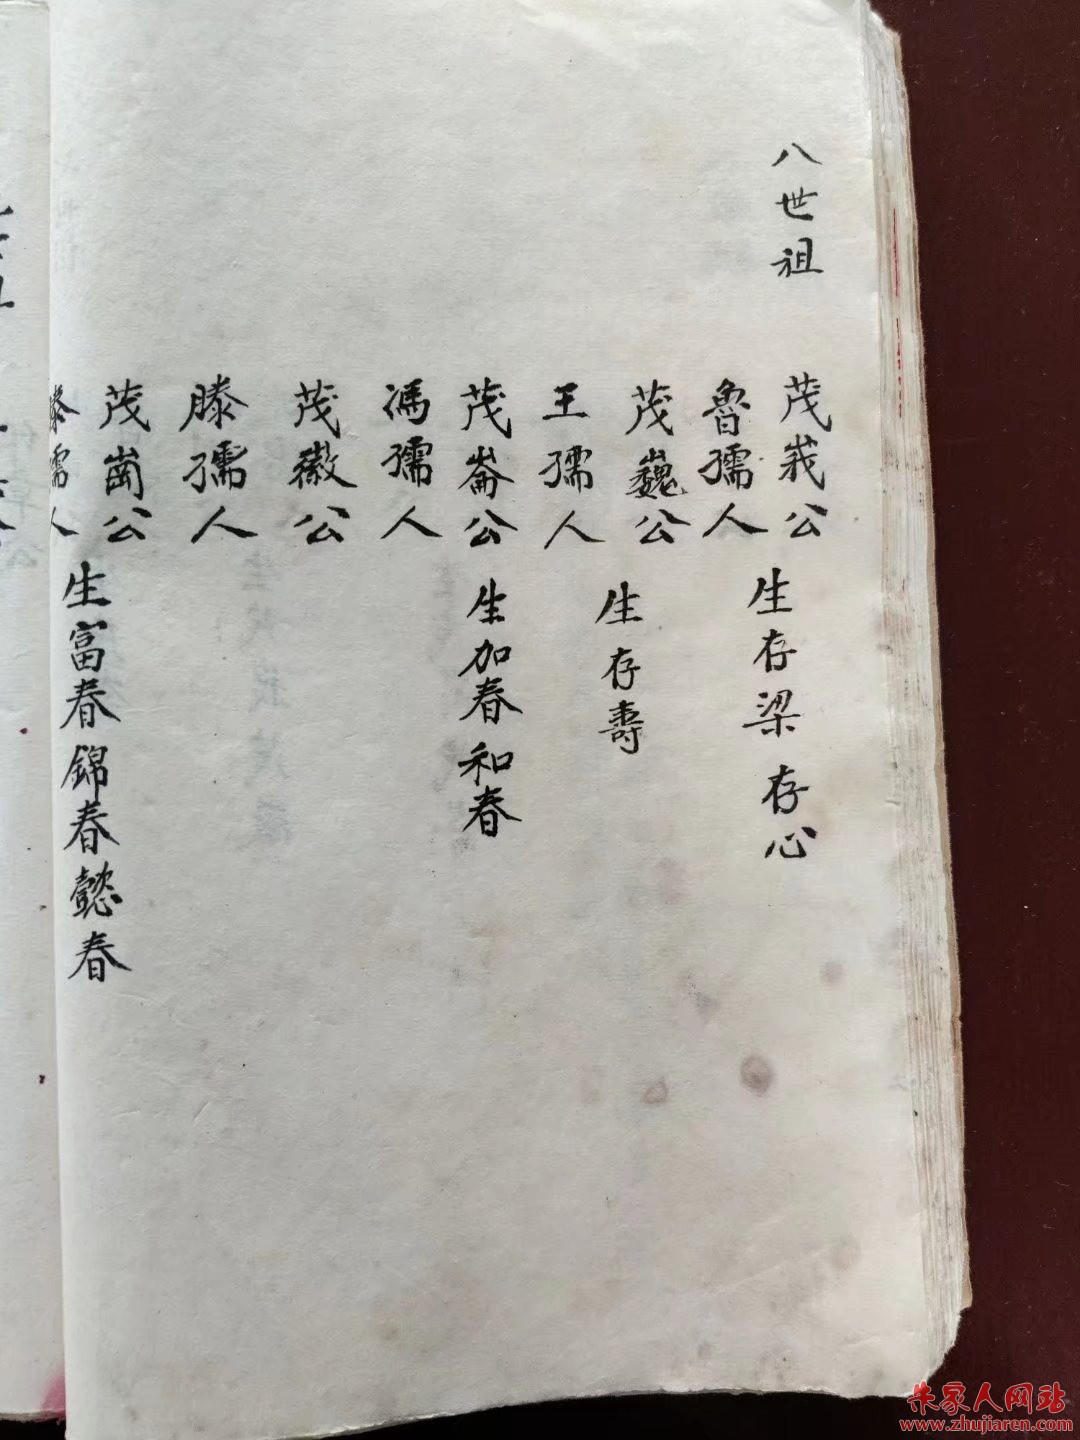 八世祖
茂峩公
魯孺人
生存梁 存心
茂巍公
王孺人
生存壽
茂崙公
馮孺人
生加春和春
茂徽公
滕孺人
茂崗公
孺人
生富春錦春懿春
朱家人网站
www.zhujiaren.com